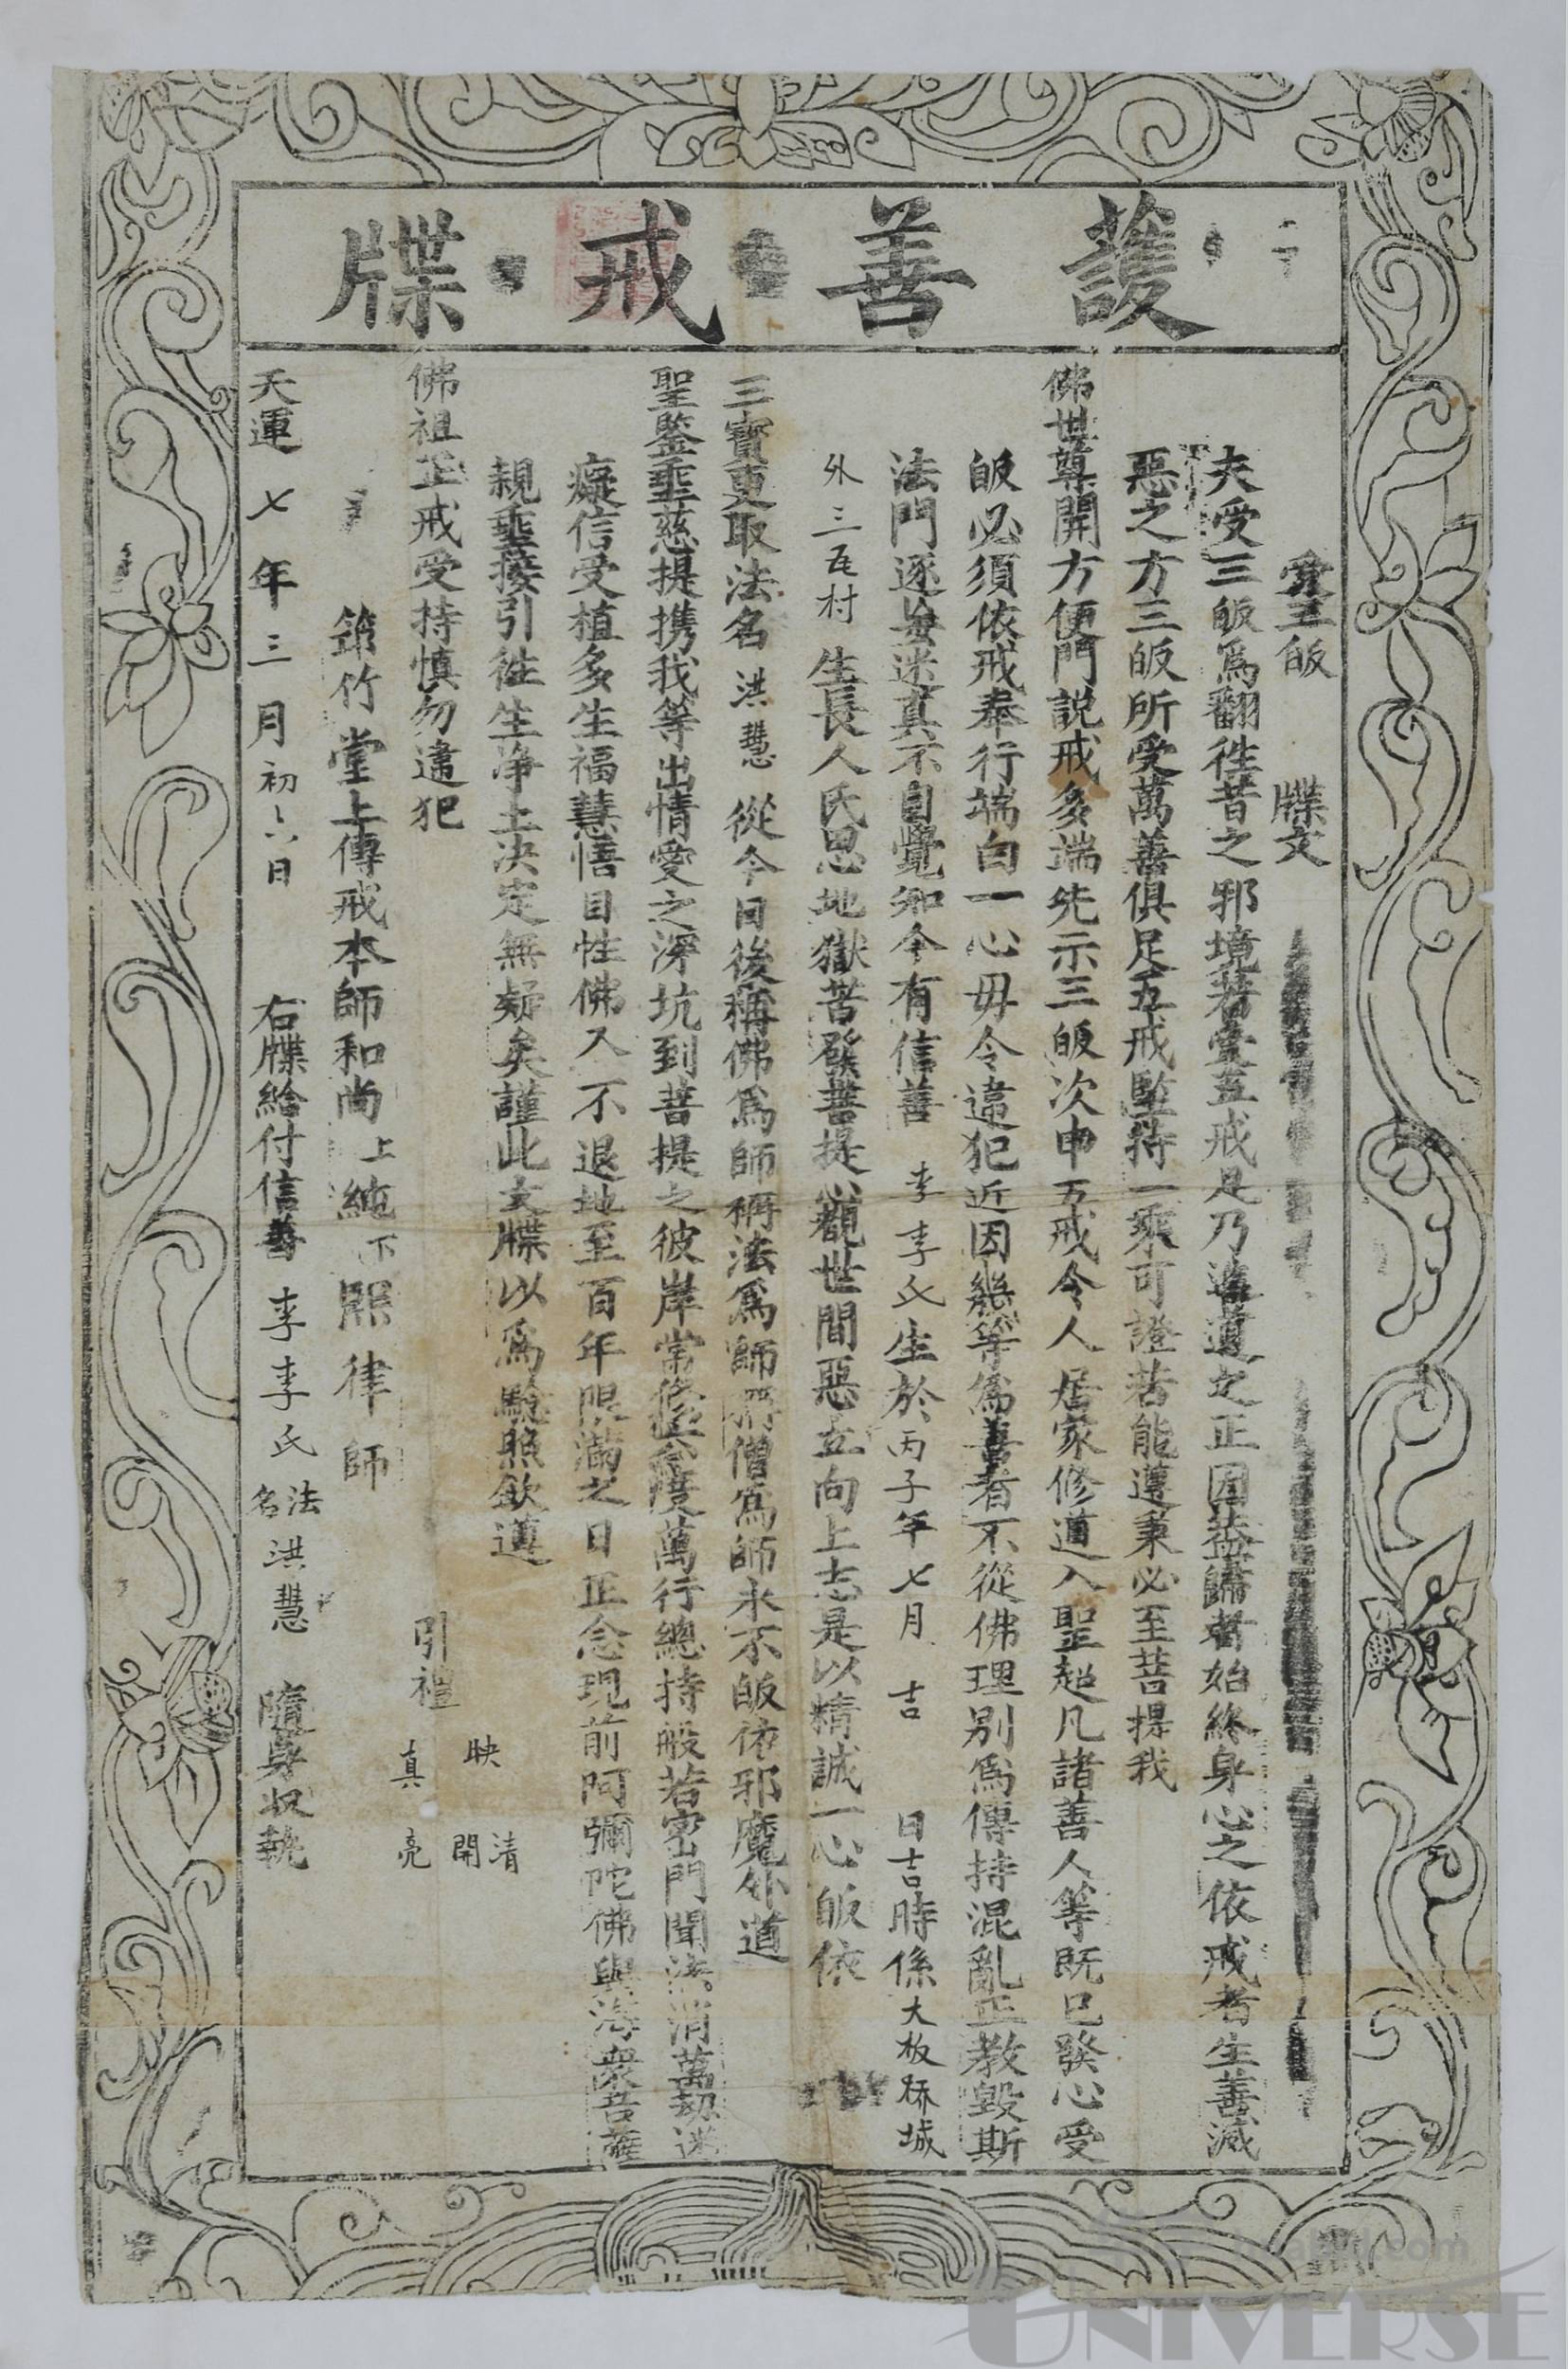 護善戒牒
三皈 牒文
夫受三皈爲翻徃昔之邪境若堂五戒是乃進道之正因益歸者始終身心之依戒者生善滅
惡之方三皈所受萬善俱足五戒堅持一乘可證若能遵秉必至菩提我
佛世尊開方便門説戒多端先示三皈次申五戒令人居家修道入聖超凡諸善人等既已發心受
皈必須依戒奉行端白一心毋令違犯近因幾等爲善者不從佛理别爲傳持混亂正教毀斯
法門逐妄迷真不自覺知今有信善 李李氏生於丙子年七月 吉 日吉時係大板桥城
外三瓦村 生長人氏思地獄苦發菩提心觀世間惡立向上志是以精誠一心皈依
三寶更取法名 洪慧 從今日後稱佛爲師稱法爲師稱僧爲師永不皈依邪魔外道
聖鑒垂慈提携我等出情愛之深坑到菩提之彼岸常修六度萬行總持般若密門聞法消萬劫迷
癡信受植多生福慧悟自性佛入不退地至百年限滿之日正念現前阿彌陀佛與海衆菩薩
親垂接引徃生净土决定無疑矣謹此文牒以爲驗照欽遵
佛祖正戒受持慎勿違犯
引禮 映 清開 真 亮
筇竹堂上傳戒本師和尚 上純下熙律師
天運七年三月初六日 右牒給付信善 李李氏 法名 洪慧 隨身収執
UNIVERSE